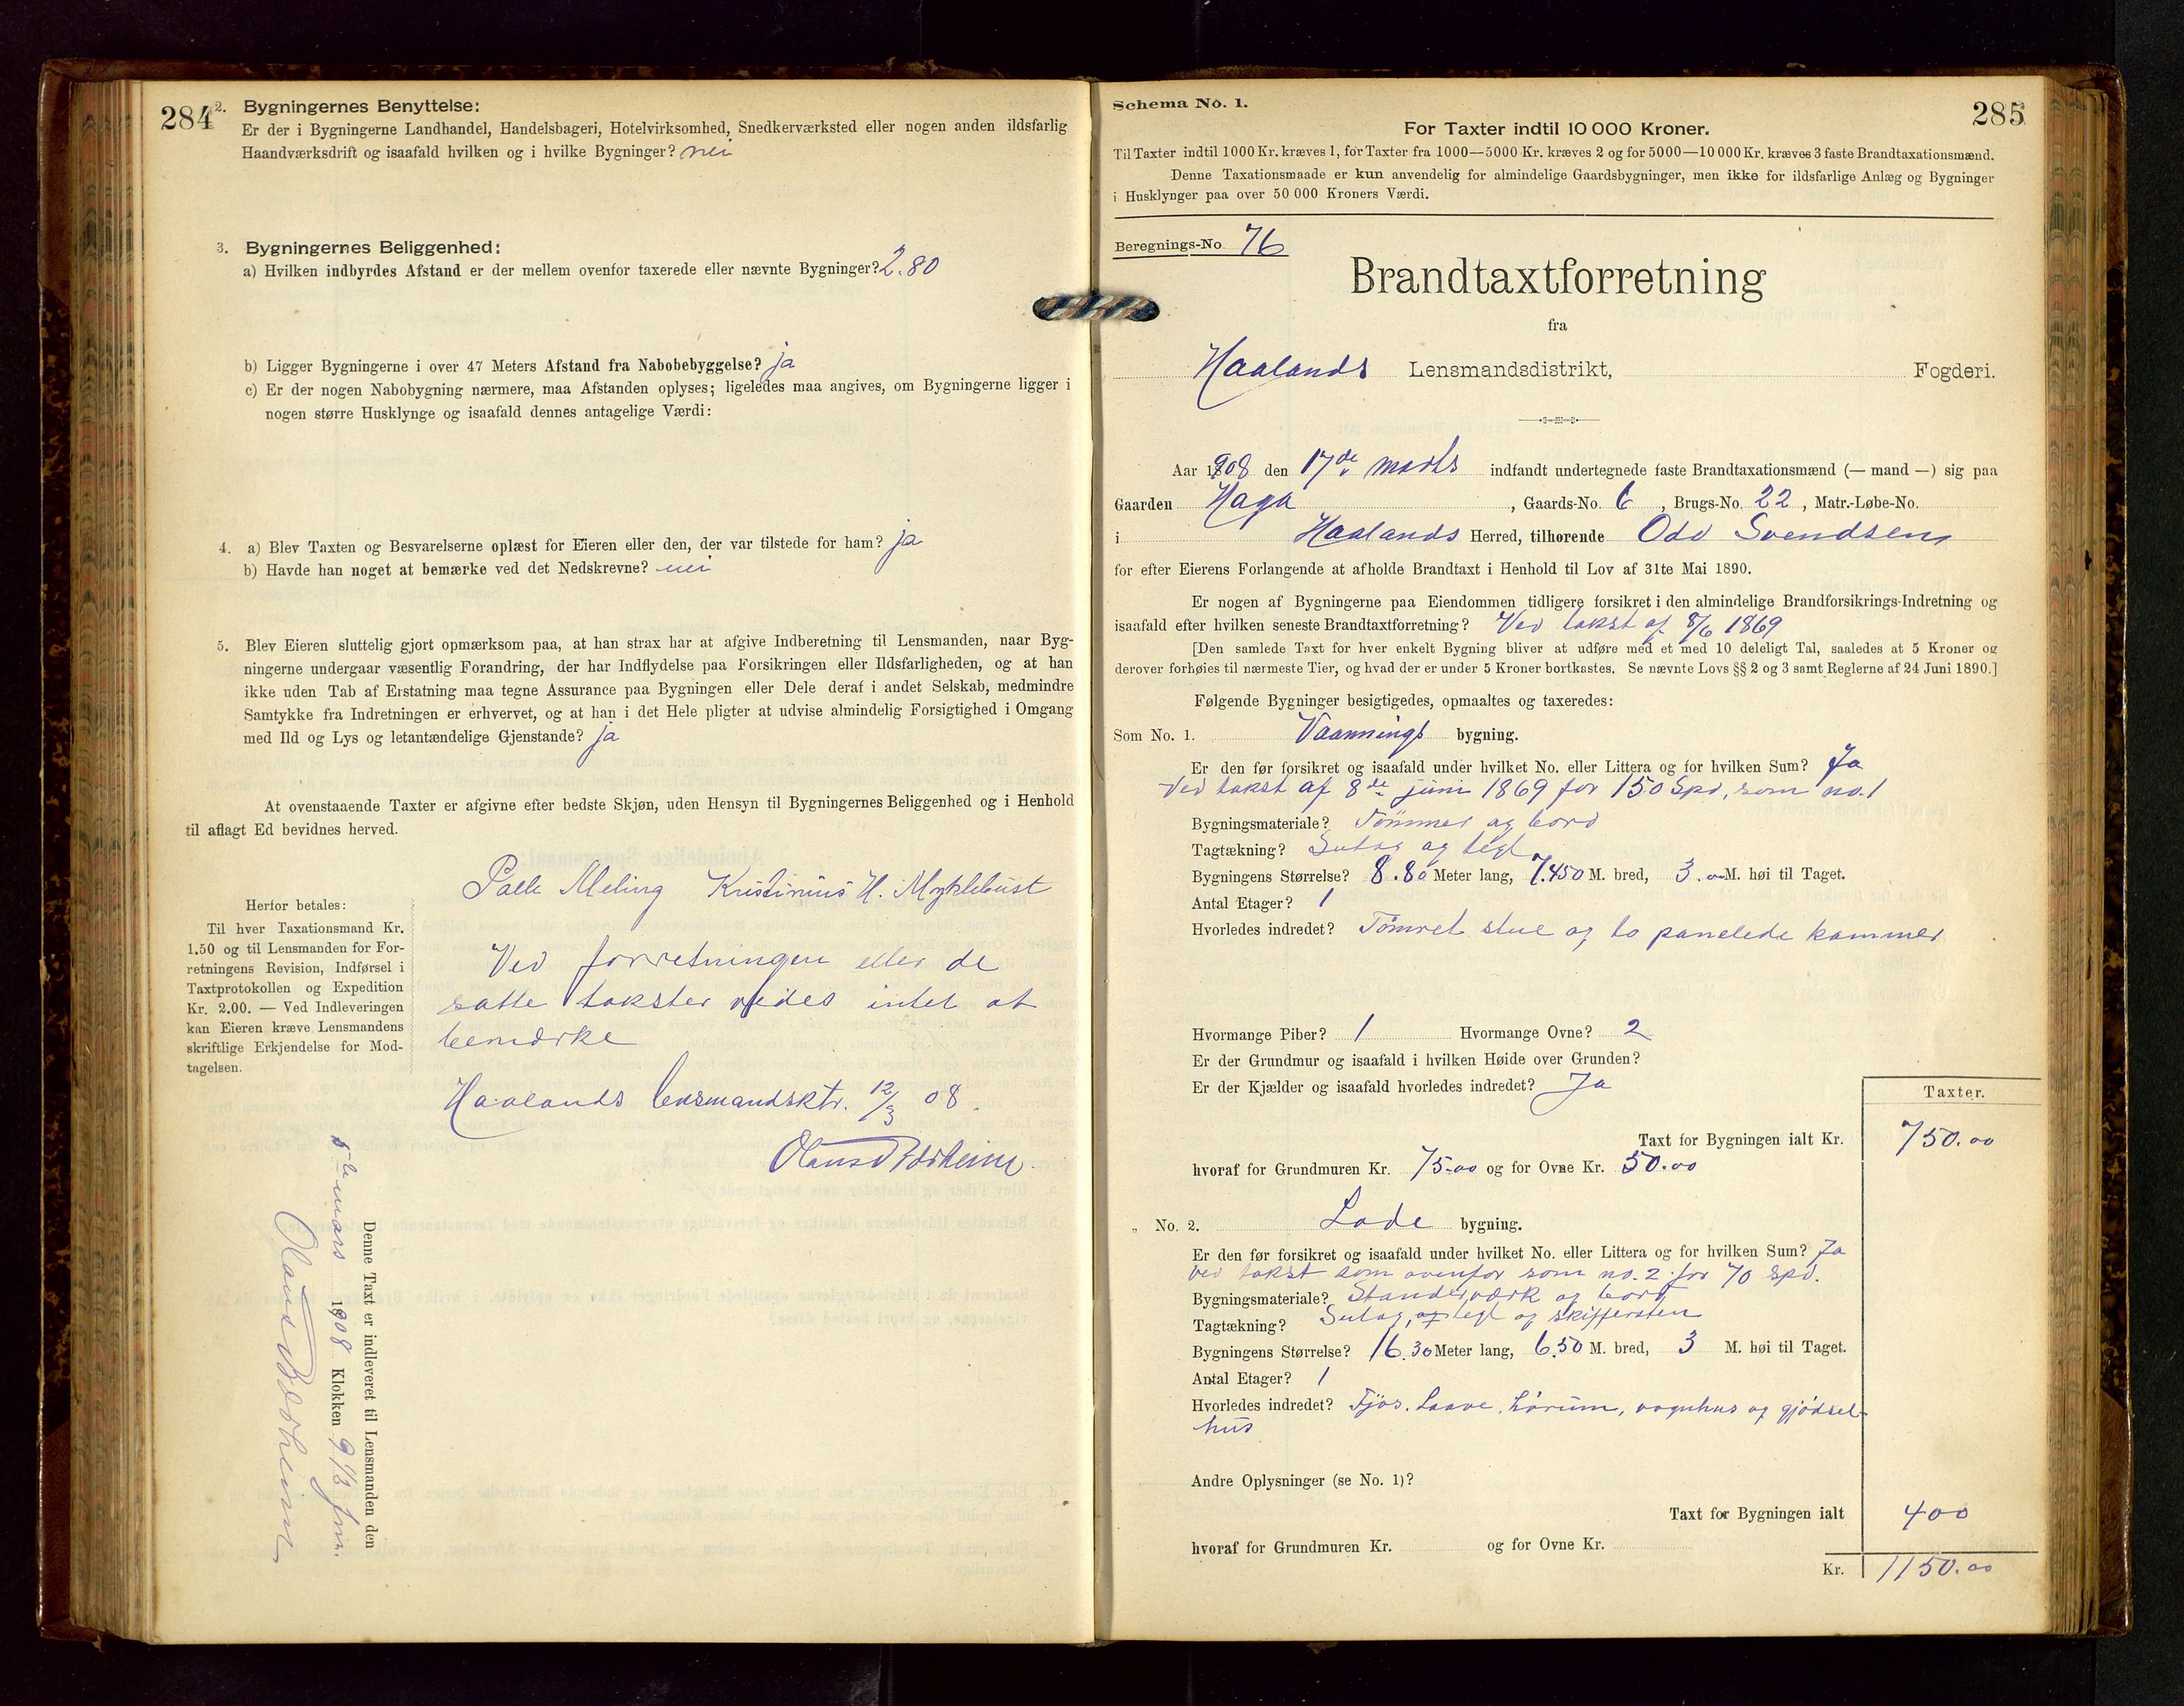 284
2. Bygningernes Benyttelse:
Er der i Bygningerne Landhandel, Handelsbageri, Hotelvirksomhed, Snedkerværksted eller nogen anden ildsfarlig
Haandværksdrift og isaafald hvilken og i hvilke Bygninger? nei
3. Bygningernes Beliggenhed:
a) Hvilken indbyrdes Afstand er der mellem ovenfor taxerede eller nævnte Bygninger? 2.80
b) Ligger Bygningerne i over 47 Meters Afstand fra Nabobebyggelse? ja
c) Er der nogen Nabobygning nærmere, maa Afstanden oplyses; ligeledes maa angives, om Bygningerne ligger i
nogen større Husklynge og isaafald dennes antagelige Værdi:
4. a) Blev Taxten og Besvarelserne oplæst for Eieren eller den, der var tilstede for ham? ja
b) Havde han noget at bemærke ved det Nedskrevne? nei
5. Blev Eieren sluttelig gjort opmærksom paa, at han strax har at afgive Indberetning til Lensmanden, naar Byg-
ningerne undergaar væsentlig Forandring, der har Indflydelse paa Forsikringen eller Ildsfarligheden, og at han
ikke uden Tab af Erstatning maa tegne Assurance paa Bygningen eller Dele deraf i andet Selskab, medmindre
Samtykke fra Indretningen er erhvervet, og at han i det Hele pligter at udvise almindelig Forsigtighed i Omgang
med Ild og Lys og letantændelige Gjenstande? ja
At ovenstaaende Taxter er afgivne efter bedste Skjøn, uden Hensyn til Bygningernes Beliggenhed og i Henhold
til aflagt Ed bevidnes herved.
Palle Meling Kristinius H. Myklebust
Herfor betales:
Til hver Taxationsmand Kr.
1.50 og til Lensmanden for For-
retningens Revision, Indførsel i
Taxtprotokollen og Expedition
Kr. 2.00. — Ved Indleveringen
kan Eieren kræve Lensmandens
skriftlige Erkjendelse for Mod-
tagelsen.
Ved forretningen eller de
satte takster vides intet at
bemærke
Haalands lensmandsktr. 12/3 08.
Denne Taxt er indleveret til Lensmanden den
mars 1908 Klokken 9 1/2 fm.
285
Schema No. 1.
For Taxter indtil 10 000 Kroner.
Til Taxter indtil 1000 Kr. kræves 1, for Taxter fra 1000—5000 Kr. kræves 2 og for 5000—10 000 Kr. kræves 3 faste Brandtaxationsmænd.
Denne Taxationsmaade er kun anvendelig for almindelige Gaardsbygninger, men ikke for ildsfarlige Anlæg og Bygninger
i Husklynger paa over 50 000 Kroners Værdi.
Beregnings-No. 76
Brandtaxtforretning
fra
Haalands Lensmandsdistrikt, Fogderi.
Aar 1908 den 17de marts indfandt undertegnede faste Brandtaxationsmænd (— mand —) sig paa
Gaarden Haga, Gaards-No. 6, Brugs-No. 22, Matr.-Løbe-No.
i Haalands Herred, tilhørende Odd Svendsen
for efter Eierens Forlangende at afholde Brandtaxt i Henhold til Lov af 31te Mai 1890.
Er nogen af Bygningerne paa Eiendommen tidligere forsikret i den almindelige Brandforsikrings-Indretning og
isaafald efter hvilken seneste Brandtaxtforretning? Ved takst af 8/6 1869
[Den samlede Taxt for hver enkelt Bygning bliver at udføre med et med 10 deleligt Tal, saaledes at 5 Kroner og
derover forhøies til nærmeste Tier, og hvad der er under 5 Kroner bortkastes. Se nævnte Lovs §§ 2 og 3 samt Reglerne af 24 Juni 1890.]
Følgende Bygninger besigtigedes, opmaaltes og taxeredes:
Som No. 1. Vaanings bygning.
Er den før forsikret og isaafald under hvilket No. eller Littera og for hvilken Sum? Ja
Ved takst af 8de juni 1869 for 150 Spd, som no. 1
Bygningsmateriale? Tømmer og bord
Tagtækning? Sutag og tegl
Bygningens Størrelse? 8.80 Meter lang, 7.450 M. bred, 3.00 M. høi til Taget.
Antal Etager? 1
Hvorledes indredet? Tømret stue og to panelede kammer
Hvormange Piber? 1 Hvormange Ovne? 2
Er der Grundmur og isaafald i hvilken Høide over Grunden?
Er der Kjælder og isaafald hvorledes indredet? Ja
Taxter.
Taxt for Bygningen ialt Kr. 750.00
hvoraf for Grundmuren Kr. 75.00 og for Ovne Kr. 50.00
„ No. 2. Lade bygning.
Er den før forsikret og isaafald under hvilket No. eller Littera og for hvilken Sum? Ja
Ved takst som ovenfor som no. 2 for 70 spd.
Bygningsmateriale? Standerværk og bord
Tagtækning? Sutag, og tegl og skiffersten
Bygningens Størrelse? 16.30 Meter lang, 6.50 M. bred, 3 M. høi til Taget.
Antal Etager? 1
Hvorledes indredet? Fjøs, Laave, vognhus og gjødsel-
hus
Andre Oplysninger (se No. 1)?
Taxt for Bygningen ialt 400
hvoraf for Grundmuren Kr. og for Ovne Kr.
Kr. 1150.00